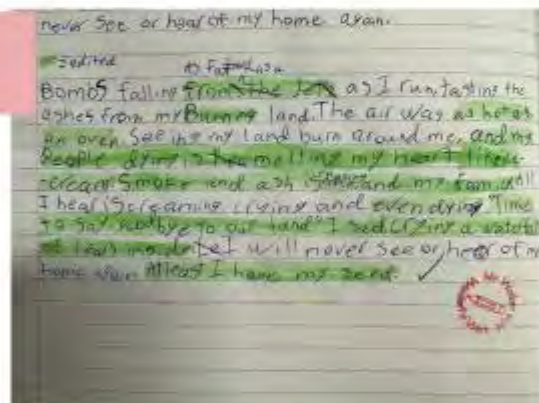 never See or hear of my home again.
edited
Bombs falling from the Jets as I run, tasting the
ashes from my Burning land. The air was as hot as
an oven. Seeing my land burn around me, and my
People dying is melting my heart like
cream Smoke and ash and my family all
I hear is Screaming crying and even dying "Time
to Say goodbye to our land" I sed crying a
of tears I will never See or heer of my
home again Atleast I have my